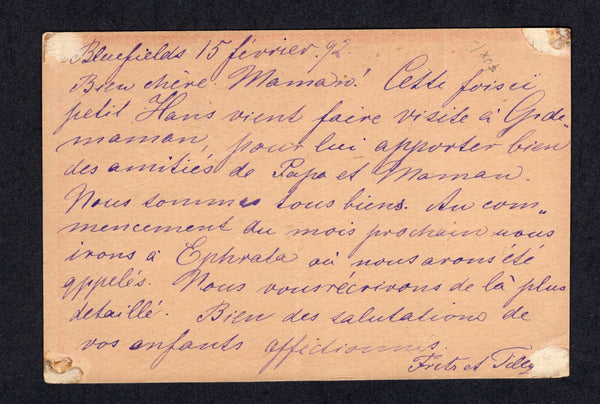 Bluefields 15 février 92.
Bien chère Mamadié! Cette foisci
petit Hans vient faire visite à Grde-
maman, pour lui apporter bien
des amitiés de Papa et Maman.
Nous sommes tous biens. Au com„
mencement du mois prochain nous
irons à Ephrata où nous avons été
appelés. Nous vous récrivons de là plus
detaillé. Bien des salutations de
vos enfants affectionnés.
Fritz et Tilly